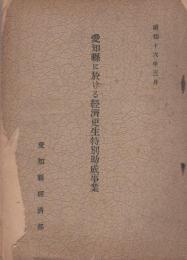 昭和十六年三月
愛知縣に於ける經濟更生特別助成事業
愛知縣經濟部